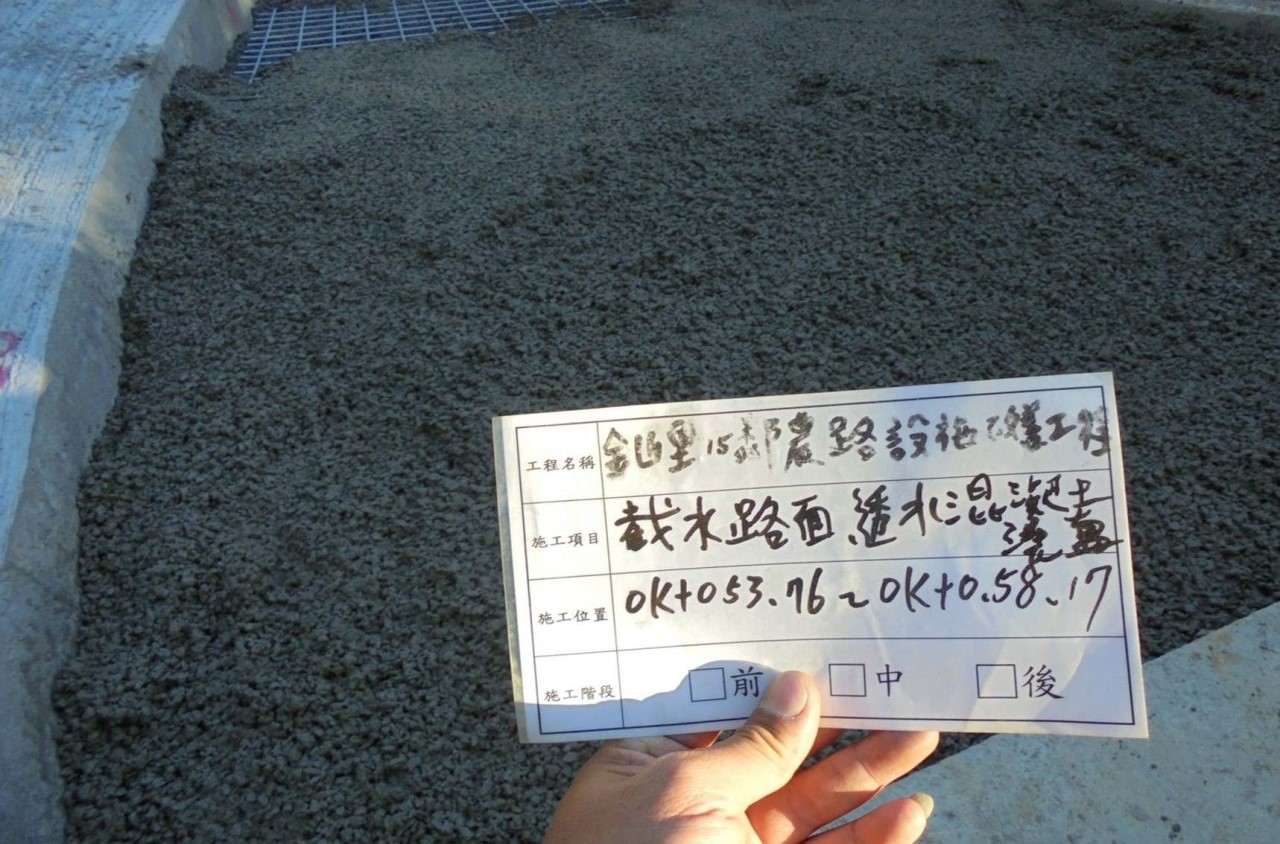 工程名稱 金山里15鄰農路設施改善工程
施工項目 截水路面.透水混凝土
澆置
施工位置 0K+053.76~0K+0.58.17
施工階段 □前 □中 □後